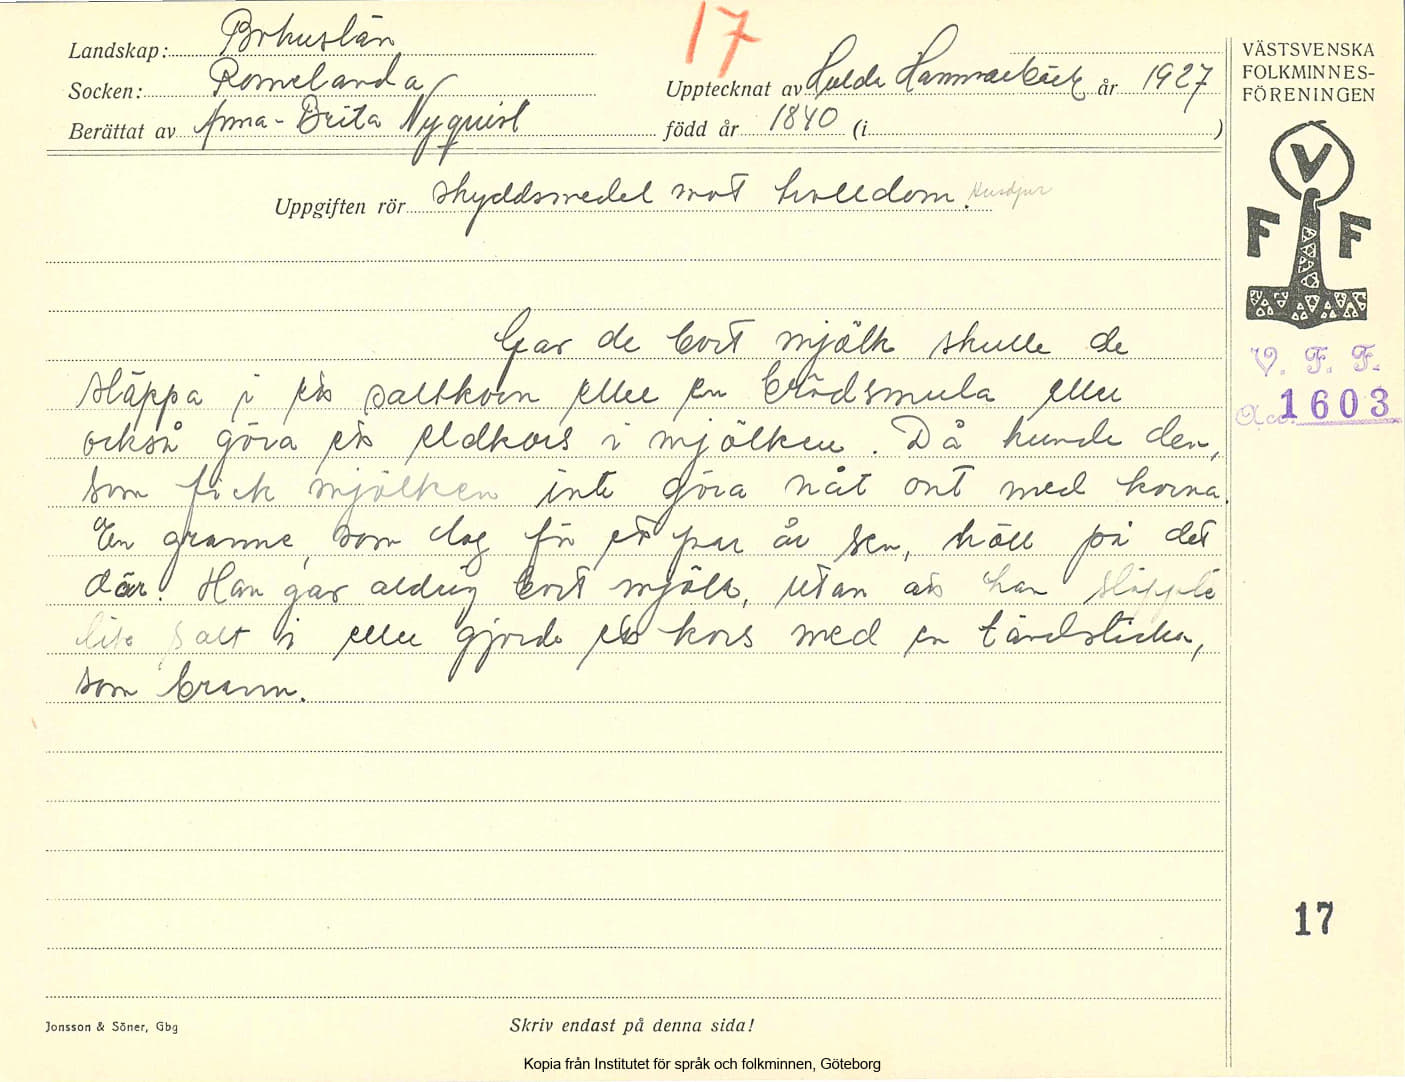 17
Landskap: Bohuslän
Socken: Romelanda
Upptecknat av Hulda Hammarbäck år 1927
Berättat av Anna-Brita Nyquist född år 1840 (i )
Uppgiften rör skyddsmedel mot trolldom. Husdjur
VÄSTSVENSKA
FOLKMINNES-
FÖRENINGEN
V
F F
V. F. F.
Acc. 1603
Gav de bort mjölk skulle de
släppa i ett saltkorn eller en brödsmula eller
också göra ett eldkors i mjölken. Då kunde den,
som fick mjölken inte göra nåt ont med korna.
En granne, som dog för ett par år sen, höll på det
där. Han gav aldrig bort mjölk, utan att han släppte
lite salt i eller gjorde ett kors med en tändsticka,
som brann.
17
Jonsson & Söner, Gbg
Skriv endast på denna sida!
Kopia från Institutet för språk och folkminnen, Göteborg